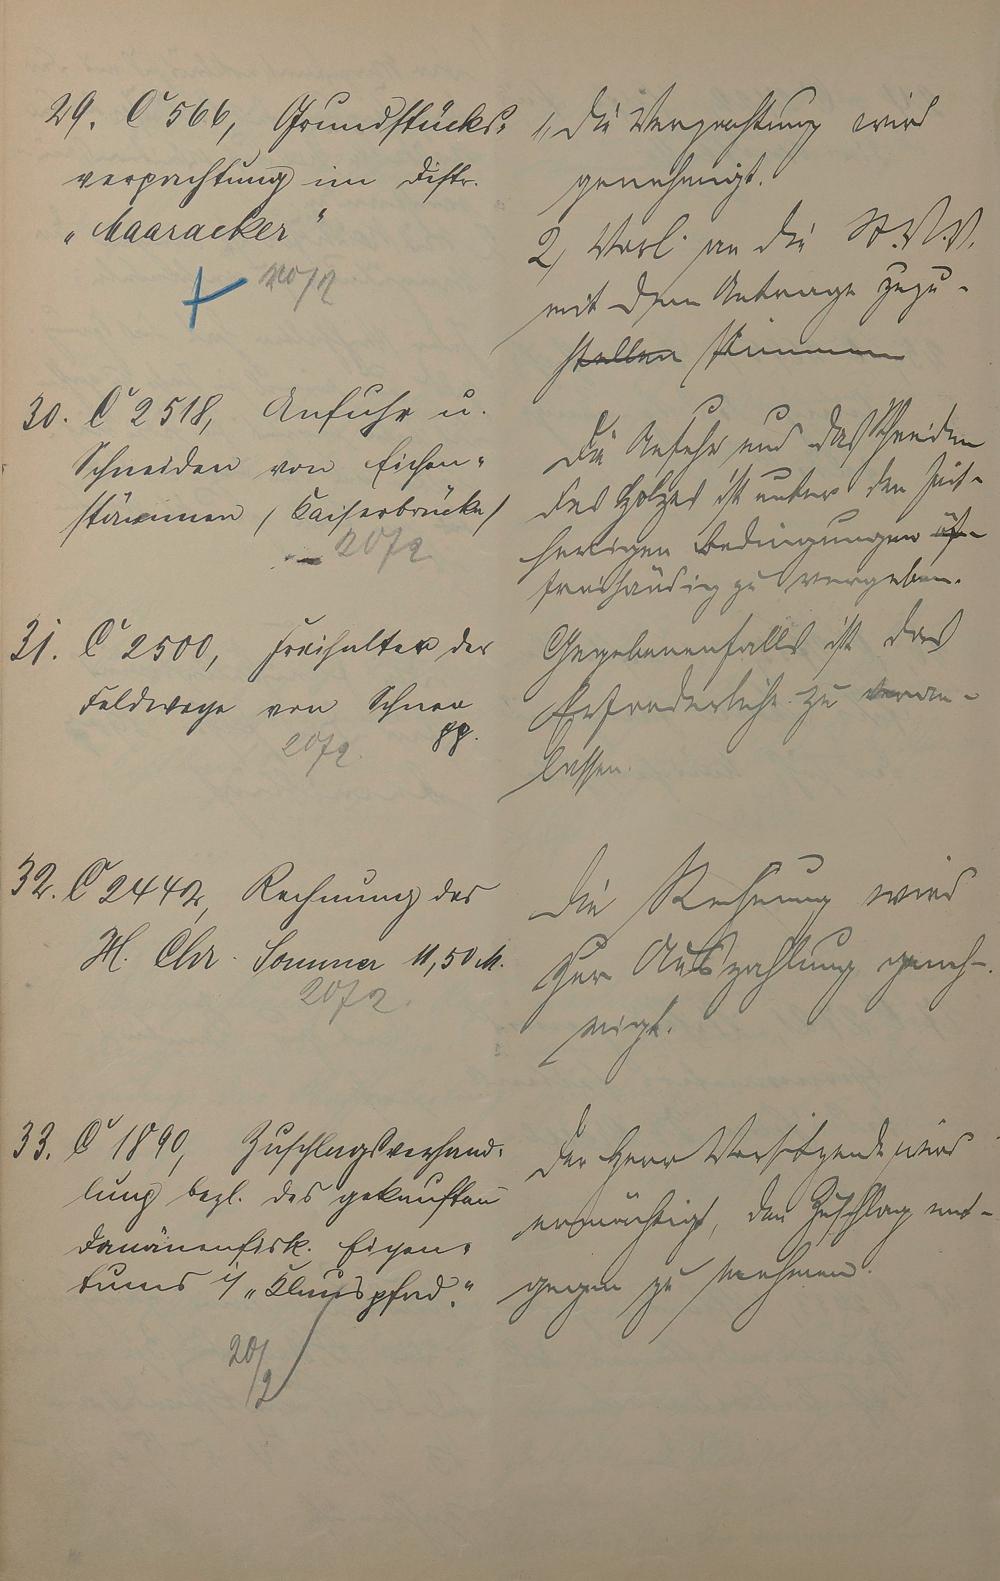 29. C 566, Grundstücks-
verpachtung im Distr.
„Maaracker"
20/2
1, Die Verpachtung wird
genehmigt.
2, Vorl. an die St.V.V.
mit dem Antrage zuzu-
stellen stimmen
30. C 2518, Anfuhr u.
Schneiden von Eichen-
stämmen (Kaiserbrücke)
20/2
Die Anfuhr und das Schneiden
des Holzes ist unter den seit-
herigen Bedingungen
freihändig zu vergeben.
31. C 2500, Freihalten der
Feldwege von Schnee
pp.
20/2.
Gegebenenfalls ist das
Erforderliche zu veran-
lassen.
32. C 2442, Rechnung des
H. Chr. Sommer 11,50 M.
20/2.
Die Rechnung wird
zur Auszahlung geneh-
migt.
33. C 1890, Zuschlagsverhand-
lung bezl. des gekauften
Domänenfisk. Eigen-
tums i/ „Klauspfad."
20/2
Der Herr Vorsitzende wird
ermächtigt, den Zuschlag ent-
gegen zu nehmen.